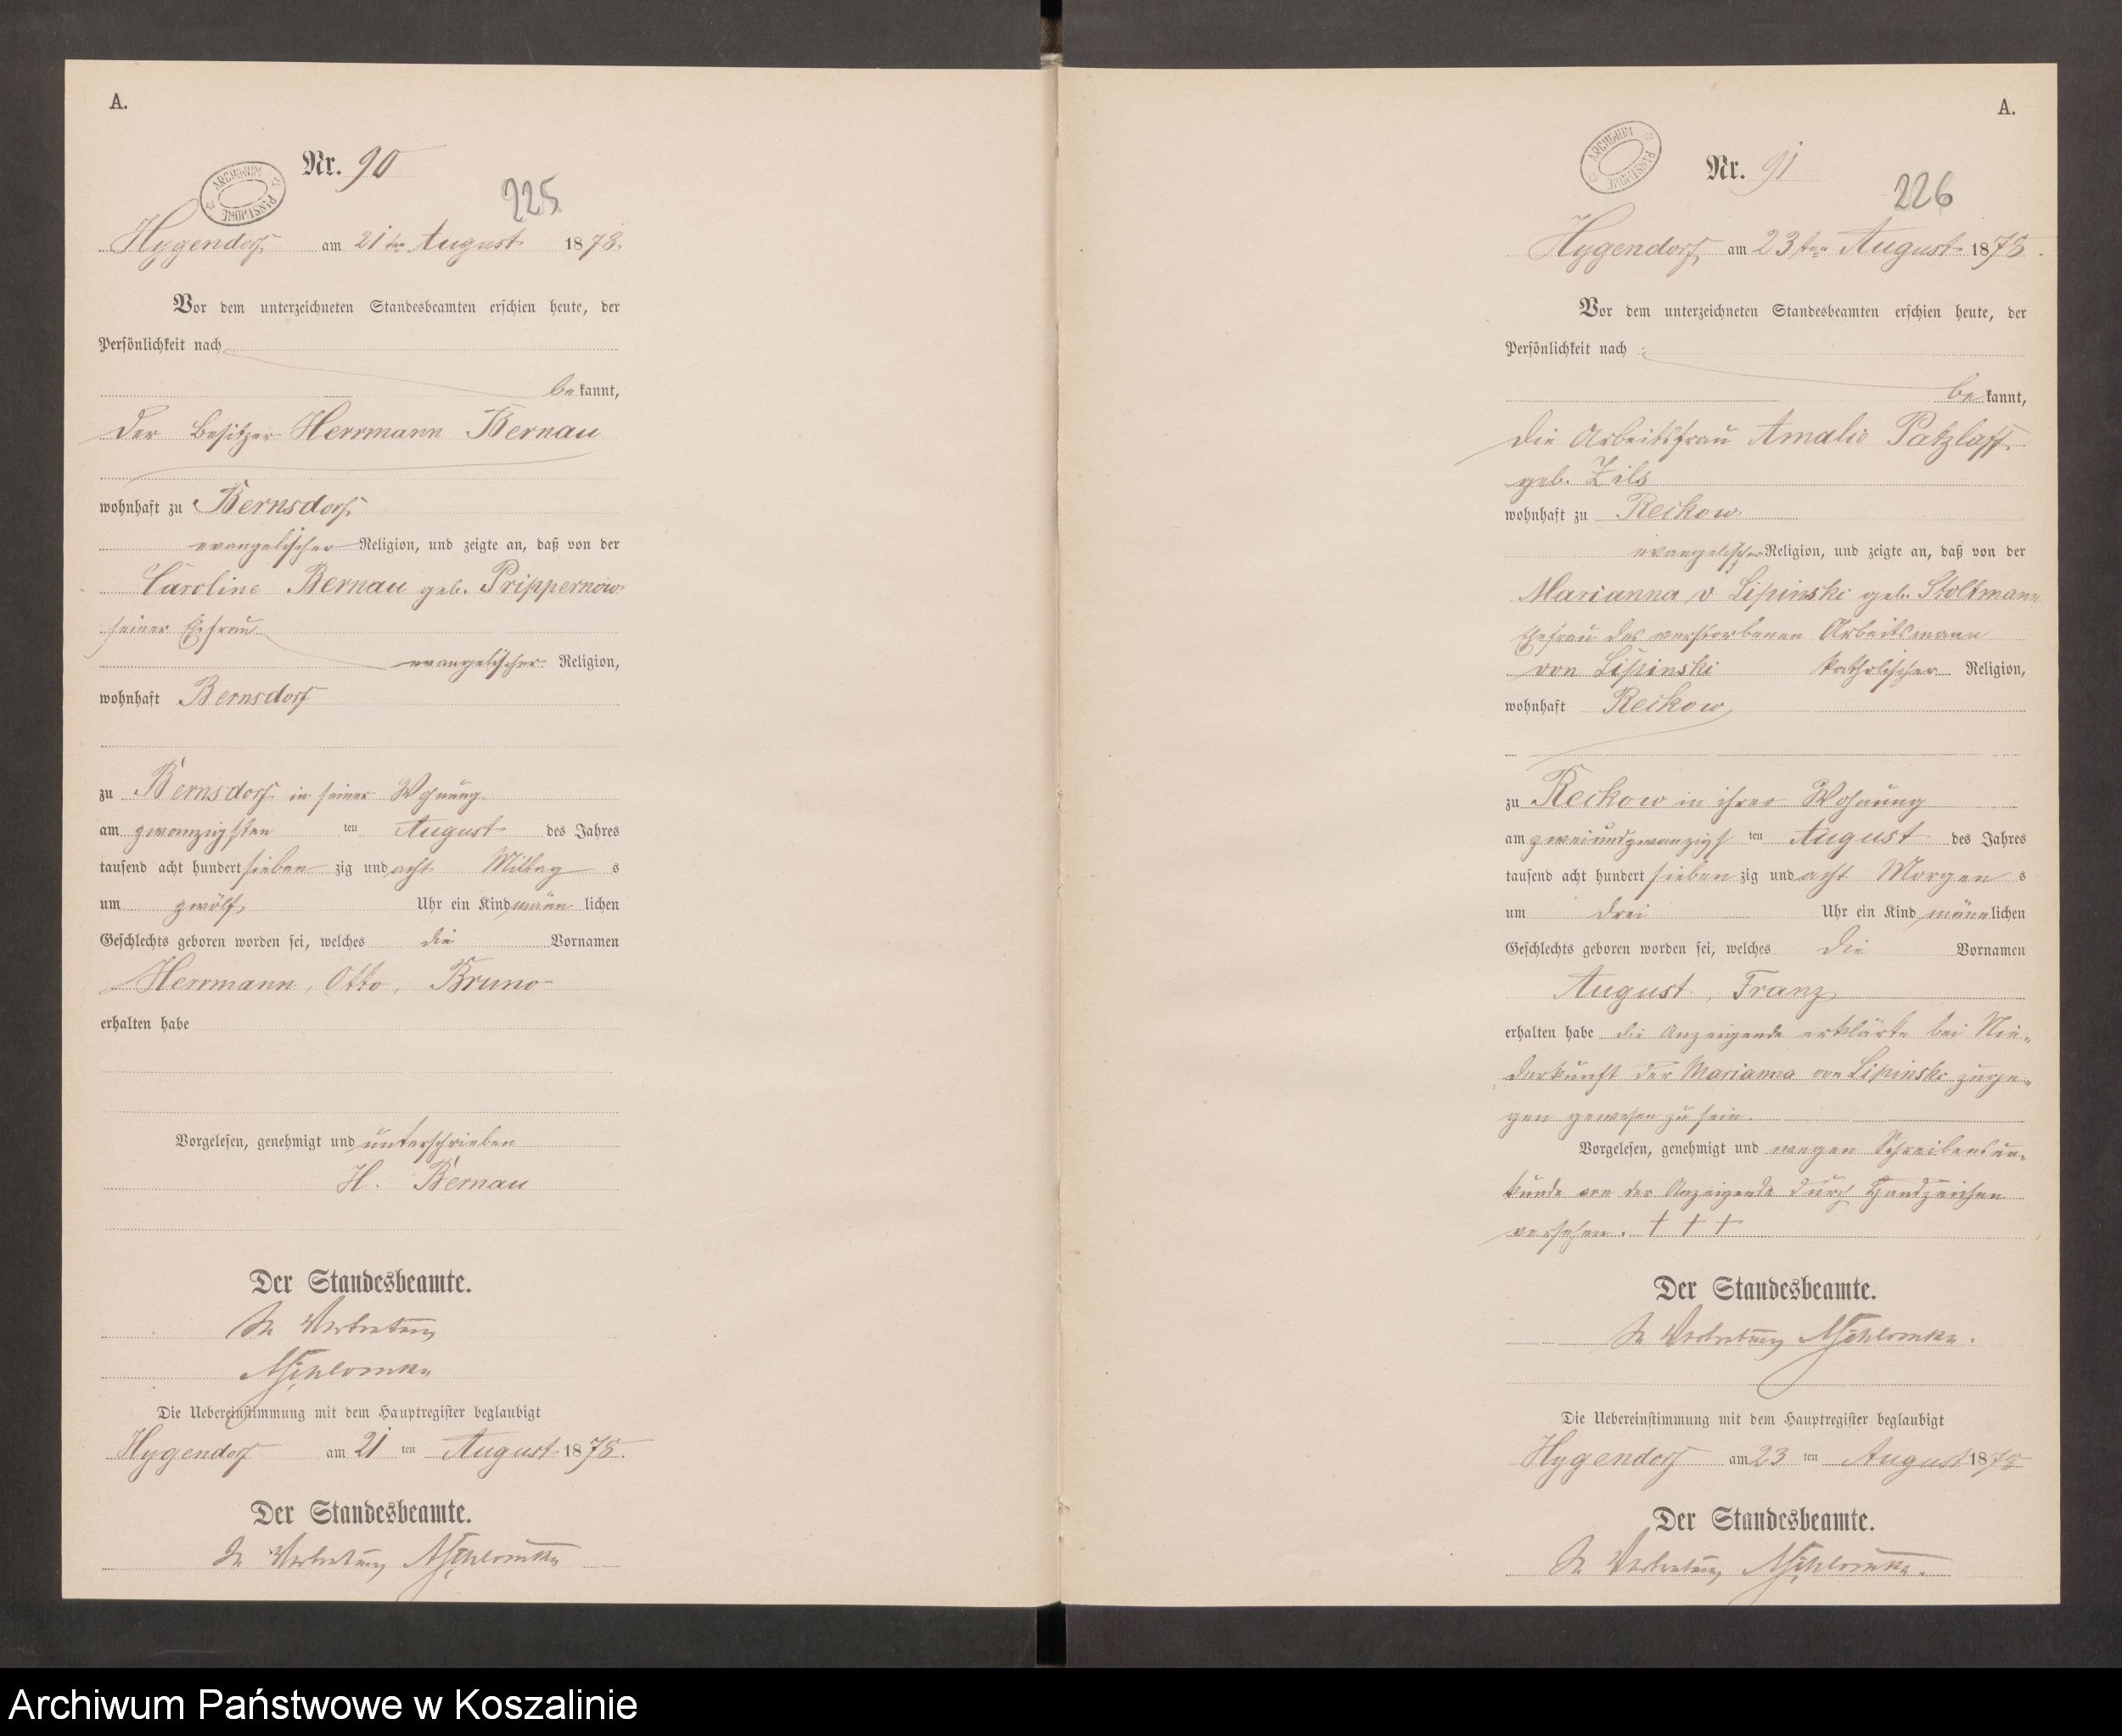 A.
Nr. 90
ARCHIWUM PAŃSTWOWE
225
Hygendorf am 21ten August 1878.
Vor dem unterzeichneten Standesbeamten erschien heute, der
Persönlichkeit nach
bekannt,
der Besitzer Herrmann Bernau
wohnhaft zu Bernsdorf
evangelischer Religion, und zeigte an, daß von der
Caroline Bernau geb. Prippernow
seiner Ehefrau
evangelischer Religion,
wohnhaft Bernsdorf
zu Bernsdorf in seiner Wohnung
am zwanzigsten ten August des Jahres
tausend acht hundert sieben zig und acht Mittag s
um zwölf Uhr ein Kind männ lichen
Geschlechts geboren worden sei, welches die Vornamen
Herrmann, Otto, Bruno
erhalten habe
Vorgelesen, genehmigt und unterschrieben
H. Bernau
Der Standesbeamte.
In Vertretung
Die Uebereinstimmung mit dem Hauptregister beglaubigt
Hygendorf am 21 ten August 1878.
Der Standesbeamte.
In Vertretung
A.
Nr. 91
ARCHIWUM PAŃSTWOWE
226
Hygendorf, am 23ten August 1878.
Vor dem unterzeichneten Standesbeamten erschien heute, der
Persönlichkeit nach
bekannt,
die Arbeitsfrau Amalie Patzlaff
geb. Zils
wohnhaft zu Reckow
evangelischer Religion, und zeigte an, daß von der
Marianna v Lipinski geb. Stoltmann
Ehefrau des verstorbenen Arbeitsmann
von Lipinski katholischer Religion,
wohnhaft Reckow
zu Reckow in ihrer Wohnung
am zweiundzwanzigs ten August des Jahres
tausend acht hundert sieben zig und acht Morgen s
um drei Uhr ein Kind männ lichen
Geschlechts geboren worden sei, welches die Vornamen
August, Franz
erhalten habe die Anzeigende erklärte bei Nie-
derkunft der Marianna von Lipinski zuge-
gen gewesen zu sein.
Vorgelesen, genehmigt und wegen Schreibensun-
kunde von der Anzeigende durch Handzeichen
versehen. † † †
Der Standesbeamte.
In Vertretung
Die Uebereinstimmung mit dem Hauptregister beglaubigt
Hygendorf am 23 ten August 1878
Der Standesbeamte.
In Vertretung
Archiwum Państwowe w Koszalinie